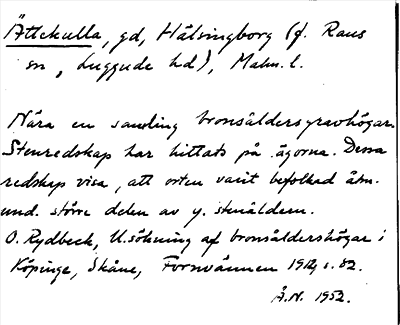 Ättekulla, gd, Hälsingborg (f. Raus
sn, Luggude hd), Malm. l.
Nära en samling bronsåldersgravhögar.
Stenredskap har hittats på ägorna. Dessa
redskap visa, att orten varit befolkad åtm.
und. större delen av y. stenåldern.
O. Rydbeck, U.sökning af bronsåldershögar i
Köpinge, Skåne, Fornvännen 1912, s. 82.
Å.N. 1952.